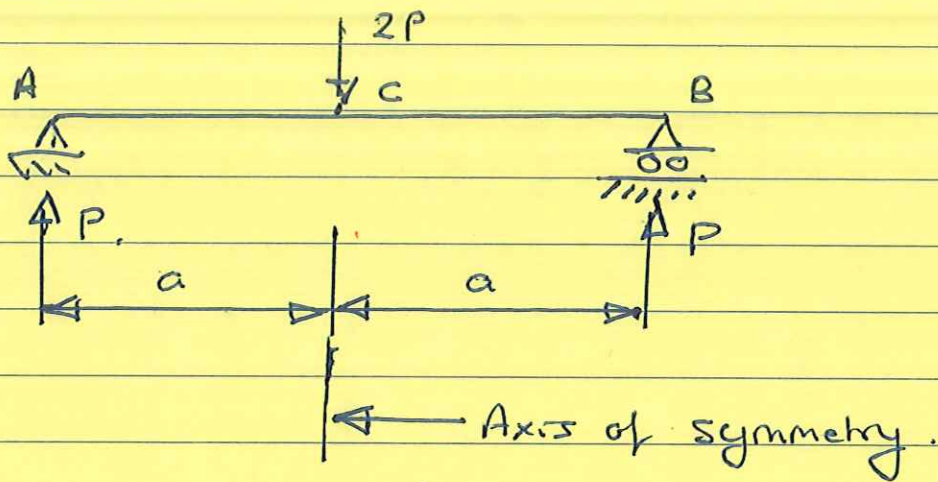 2P
A
C
B
P.
P
a
a
Axis of symmetry.